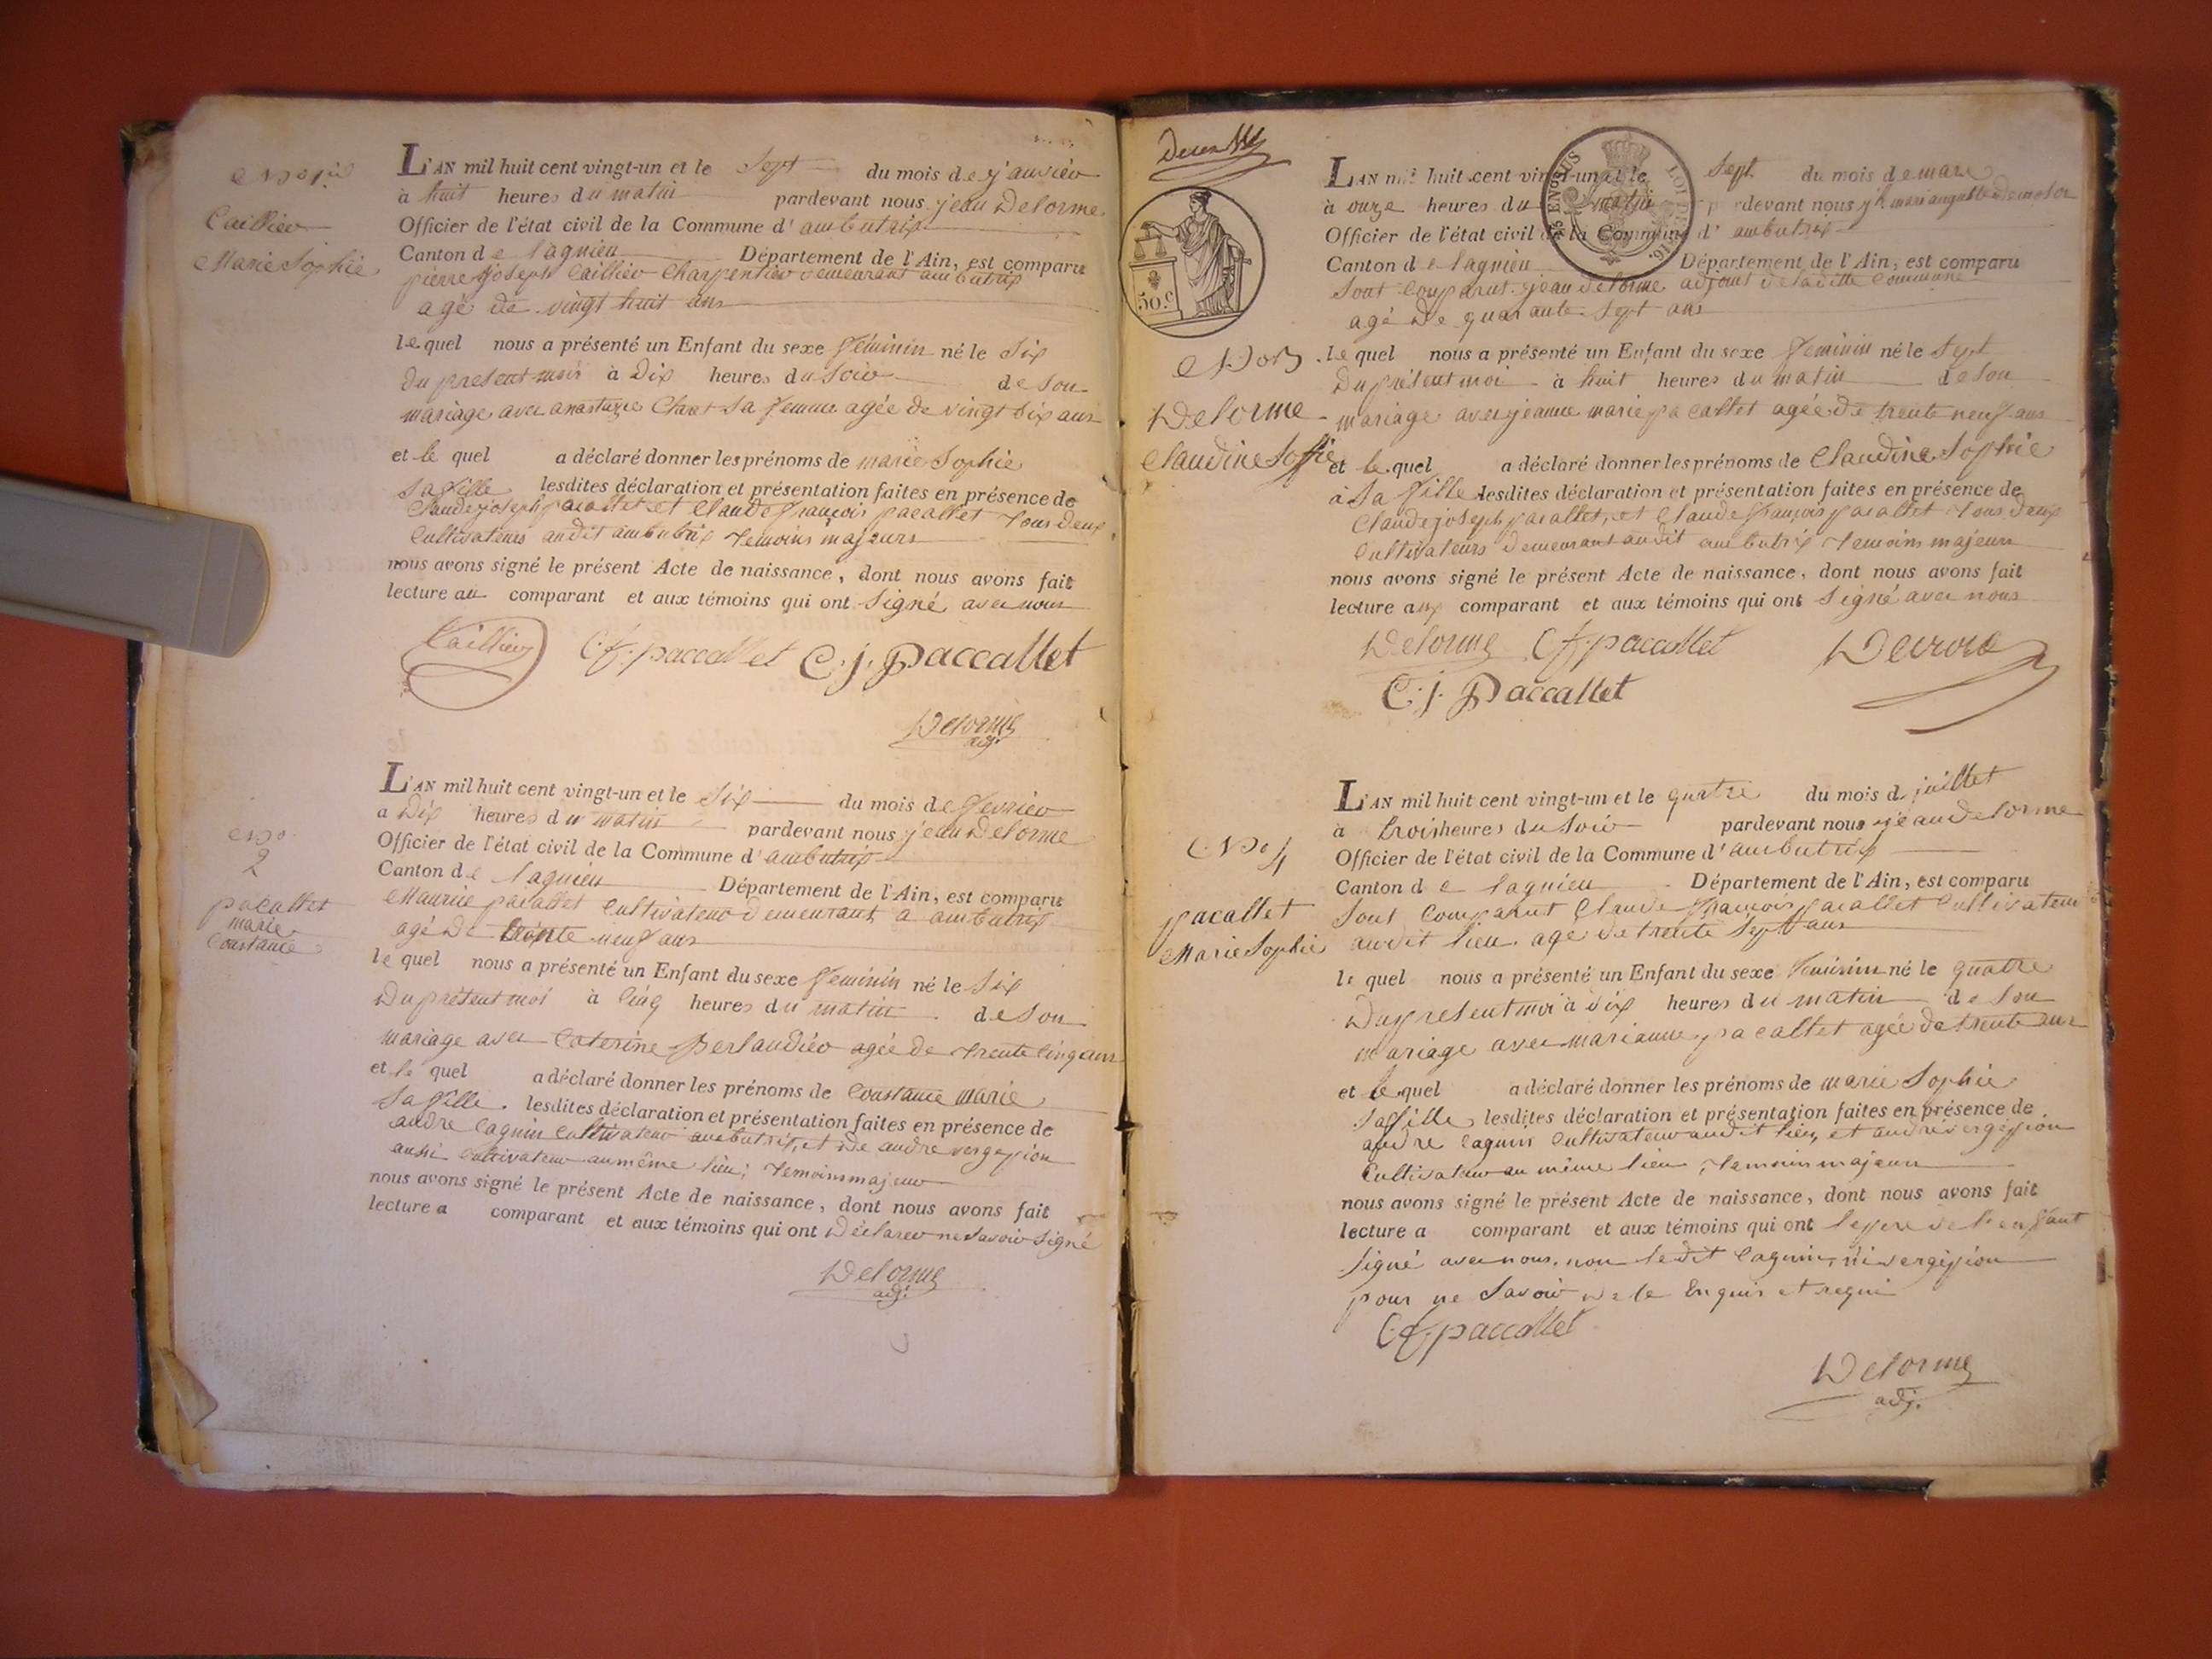 No 1er
Caillier
Marie Sophie
L'AN mil huit cent vingt-un et le Sept du mois de janvier
à huit heures du matin pardevant nous jean Delorme
Officier de l'état civil de la Commune d'ambutrix
Canton de lagnieu Département de l'Ain, est comparu
pierre joseph Caillier Charpentier demeurant ambutrix
agé de vingt huit ans
lequel nous a présenté un Enfant du sexe féminin né le Six
du present mois à Dix heures du Soir de Son
mariage avec anastazie Claret Sa femme agée de vingt Six ans
et le quel a déclaré donner les prénoms de marie Sophie
Sa fille lesdites déclaration et présentation faites en présence de
Claude joseph pacallet et Claude françois pacallet tous deux
Cultivateurs audit ambutrix temoins majeurs
nous avons signé le présent Acte de naissance, dont nous avons fait
lecture au comparant et aux témoins qui ont Signé avec nous
Caillier C. f. paccallet C. j. Paccallet
Delorme
adj.
No
2
pacallet
marie
Constance
L'AN mil huit cent vingt-un et le Six du mois de fevrier
a Dix heures du matin pardevant nous jean Delorme
Officier de l'état civil de la Commune d'ambutrix
Canton de lagnieu Département de l'Ain, est comparu
Maurice pacallet Cultivateur demeurant a ambutrix
agé De trente neuf ans
lequel nous a présenté un Enfant du sexe féminin né le Six
Du présent moi à Cinq heures du matin de Son
mariage avec Caterine perlaudier agée de trente Cinq ans
et le quel a déclaré donner les prénoms de Constance marie
Sa fille. lesdites déclaration et présentation faites en présence de
andre Cagnin Cultivateur ambutrix, et De andre vergepion
aussi Cultivateur au même lieu; temoins majeur
nous avons signé le présent Acte de naissance, dont nous avons fait
lecture a comparant et aux témoins qui ont Déclarer ne Savoir Signé
Delorme
adj.
50.c
No 3
Delorme
Claudine Soffie
L'AN mil huit cent vingt-un et le Sept du mois de mars
à onze heures du matin pardevant nous
Officier de l'état civil de la Commune d'ambutrix
Canton de lagnieu Département de l'Ain, est comparu
Sont Comparut jean delorme adjoint de la ditte Commune
agé De quarante Sept ans
le quel nous a présenté un Enfant du sexe feminin né le Sept
Du présent moi à huit heures du matin de Son
mariage avec jeanne marie pacallet agée De trente neuf ans
et le quel a déclaré donner les prénoms de Claudine Sophie
à Sa fille lesdites déclaration et présentation faites en présence de
Claude joseph pacallet, et Claude françois pacallet tous deux
Cultivateurs demeurant audit ambutrix temoins majeurs
nous avons signé le présent Acte de naissance, dont nous avons fait
lecture aux comparant et aux témoins qui ont Signé avec nous
Delorme C f. paccallet
C. j. Paccallet
No 4
pacallet
Marie Sophie
L'AN mil huit cent vingt-un et le quatre du mois de juillet
à trois heures du Soir pardevant nous jean delorme
Officier de l'état civil de la Commune d'ambutrix
Canton de lagnieu Département de l'Ain, est comparu
Sont Comparut Claude françois pacallet Cultivateur
audit lieu agé de trente Sept ans
le quel nous a présenté un Enfant du sexe feminin né le quatre
Du present moi à Dix heures du matin de Son
mariage avec marianne pacallet agée de trente ans
et le quel a déclaré donner les prénoms de marie Sophie
Sa fille lesdites déclaration et présentation faites en présence de
andre Cagnin Cultivateur audit lieu, et andré vergepion
Cultivateur au même lieu, temoins majeurs
nous avons signé le présent Acte de naissance, dont nous avons fait
lecture a comparant et aux témoins qui ont le pere de l'enfant
Signé avec nous, non le dit Cagnin, ni vergepion
pour ne Savoir De le Enquis et requi
C. f. paccallet
Delorme
adj.